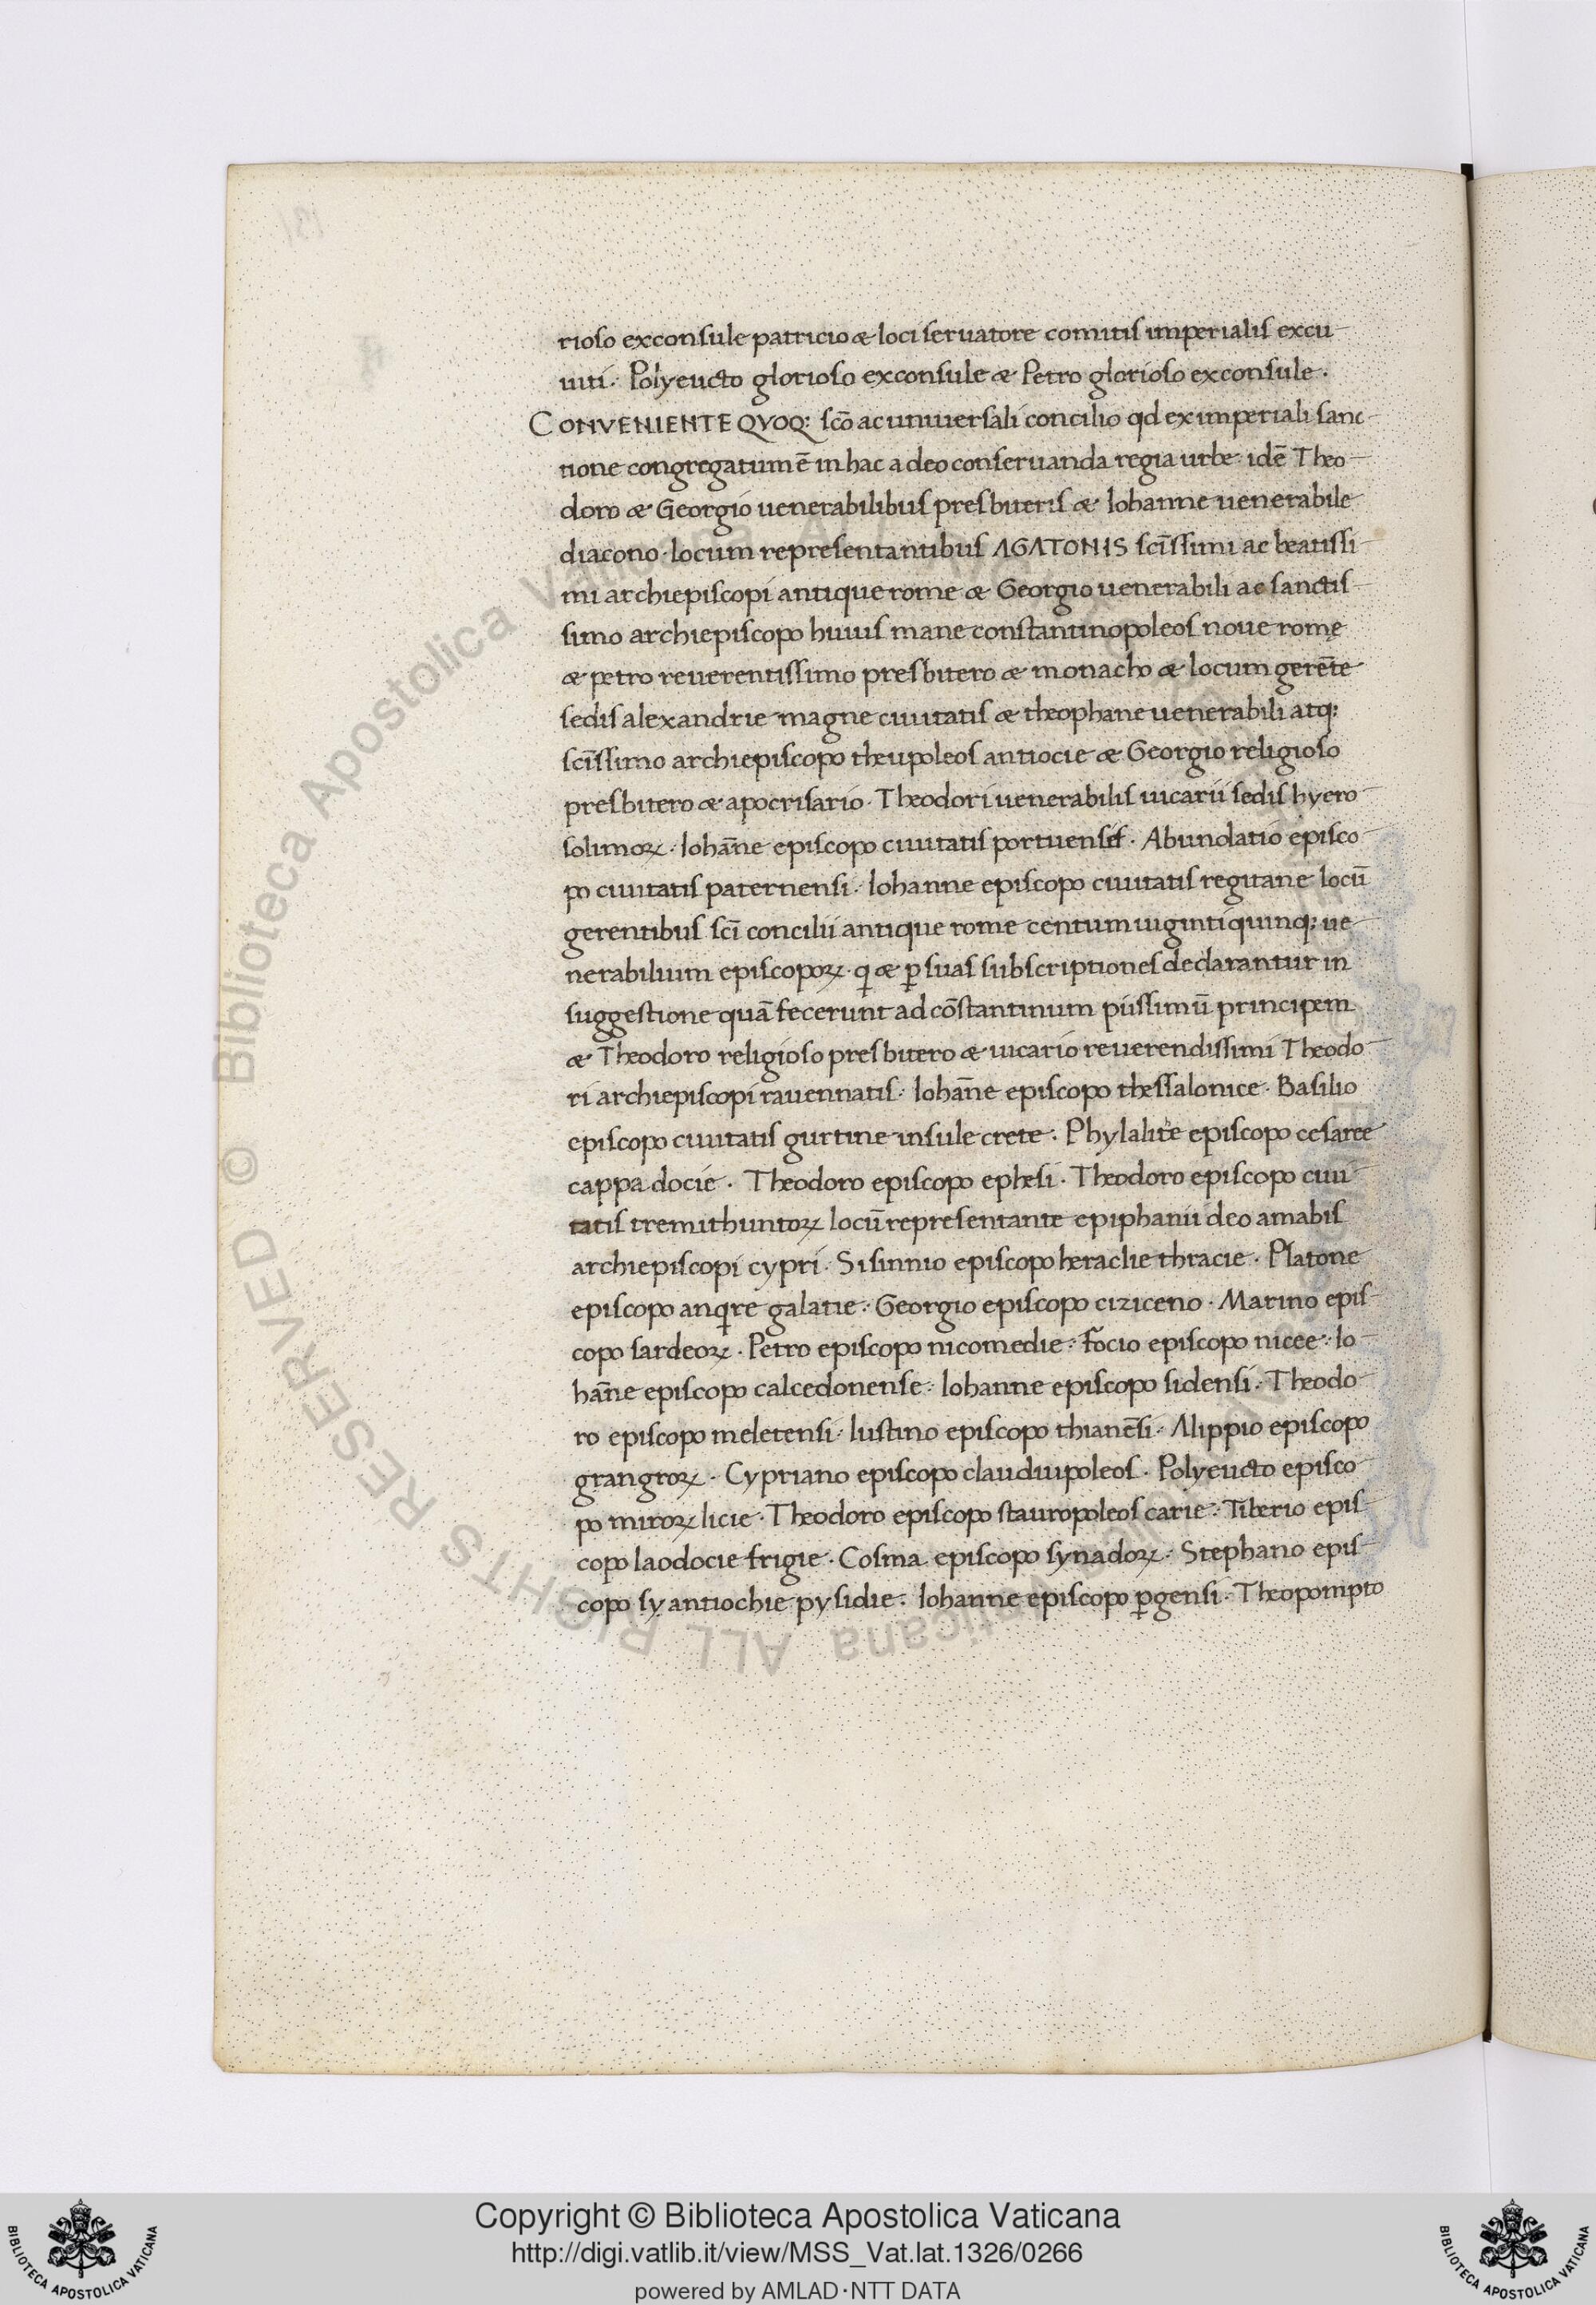 rioso exconsule patricio & loci seruatore comitis imperialis excu
uiti. Polyeucto glorioso exconsule & Petro glorioso exconsule.
CONVENIENTE QVOQ: sc̄o ac uniuersali concilio qd ex imperiali sanc
tione congregatum ē in hac a deo conseruanda regia urbe idē Theo
doro & Georgio uenerabilibus presbiteris & Iohanne uenerabile
diacono. locum representantibus AGATONIS sc̄issimi ac beatissi
mi archiepiscopi antique rome & Georgio uenerabili ac sanctis
simo archiepiscopo huius mane constantinopoleos noue romę
& petro reuerentissimo presbitero & monacho & locum gerēte
sedis alexandrie magne ciuitatis & theophane uenerabili atq:
sc̄issimo archiepiscopo theupoleos antiocie & Georgio religioso
presbitero & apocrisario. Theodori uenerabilis uicarii sedis hyero
solimoꝝ. Iohān̄e episcopo ciuitatis portuensis. Abundatio episco
po ciuitatis paternensi. Iohanne episcopo ciuitatis regitane locū
gerentibus sc̄i concilii antique rome centum uiginti quinq: ue
nerabilium episcopoꝝ. q̇ & ꝑ suas subscriptiones declarantur in
suggestione quā fecerunt ad cōstantinum piissimū principem
& Theodoro religioso presbitero & uicario reuerendissimi Theodo
ri archiepiscopi rauennatis. Iohāne episcopo thessalonice. Basilio
episcopo ciuitatis gurtine insule crete. Phylalite episcopo cesaree
cappadocie. Theodoro episcopo ephesi. Theodoro episcopo ciui
tatis tremithuntoꝝ locū representante epiphanii deo amabis
archiepiscopi cypri. Sisinnio episcopo heraclie thracie. Platone
episcopo anqre galatie. Georgio episcopo ciziceno. Marino epis
copo sardeoꝝ. Petro episcopo nicomedie. Focio episcopo nicee. Io
hāne episcopo calcedonense. Iohanne episcopo sidensi. Theodo
ro episcopo meletensi. Iustino episcopo thianēsi. Alippio episcopo
grangroꝝ. Cypriano episcopo claudiupoleos. Polyeucto episco
po miroꝝ licie. Theodoro episcopo stauropoleos carie. Tiberio epis
copo laodocie frigie. Cosma episcopo synadoꝝ. Stephano epis
copo sy antiochie pysidie. Iohanne episcopo ꝑgensi. Theopompto
© Biblioteca Apostolica Vaticana ALL RIGHTS RESERVED
Copyright © Biblioteca Apostolica Vaticana
http://digi.vatlib.it/view/MSS_Vat.lat.1326/0266
powered by AMLAD·NTT DATA
BIBLIOTECA APOSTOLICA VATICANA
BIBLIOTECA APOSTOLICA VATICANA